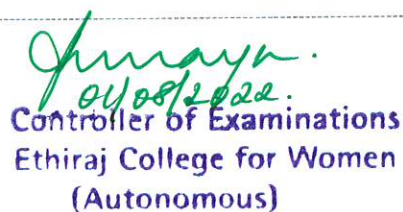 01/08/2022.
Controller of Examinations
Ethiraj College for Women
(Autonomous)